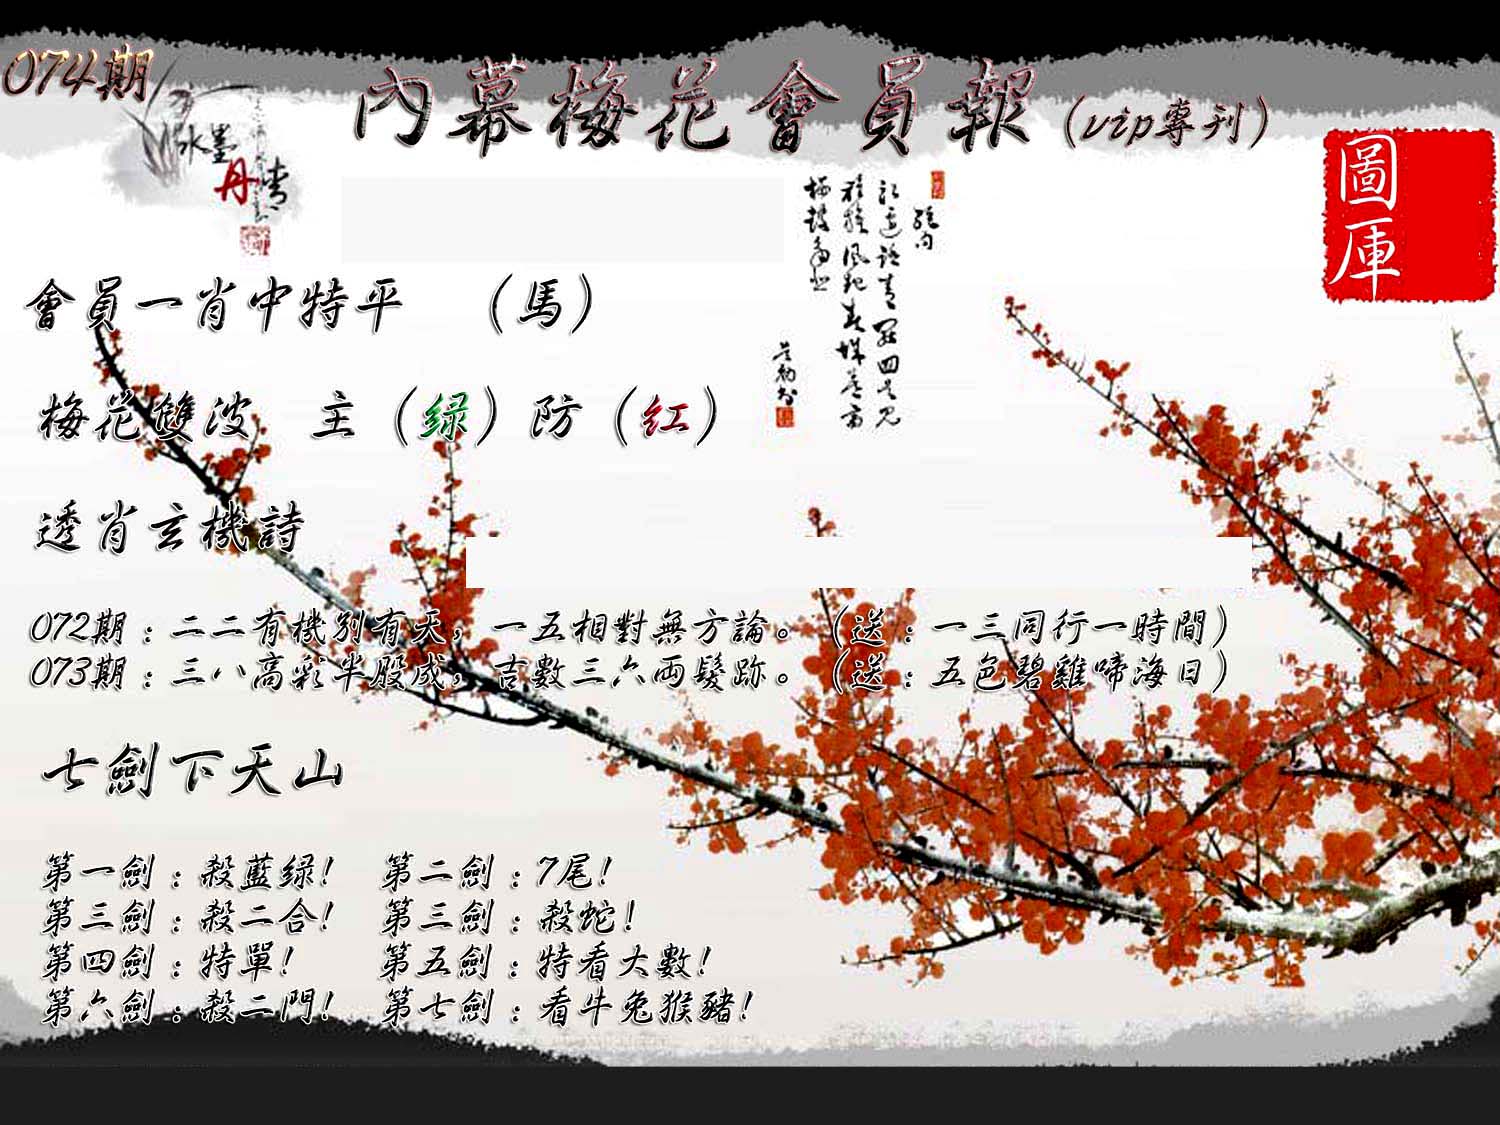 074期
內幕梅花會員報(vip專刊)
水墨
丹青
圖庫
會員一肖中特平 (馬)
梅花雙波 主(绿)防(红)
透肖玄機詩
072期:二二有機別有天,一五相對無方論。(送:一三同行一時間)
073期:三八高彩半股成,吉數三六兩髮跡。(送:五色碧雞啼海日)
七劍下天山
第一劍:殺藍绿! 第二劍:7尾!
第三劍:殺二合! 第三劍:殺蛇!
第四劍:特單! 第五劍:特看大數!
第六劍:殺二門! 第七劍:看牛兔猴豬!